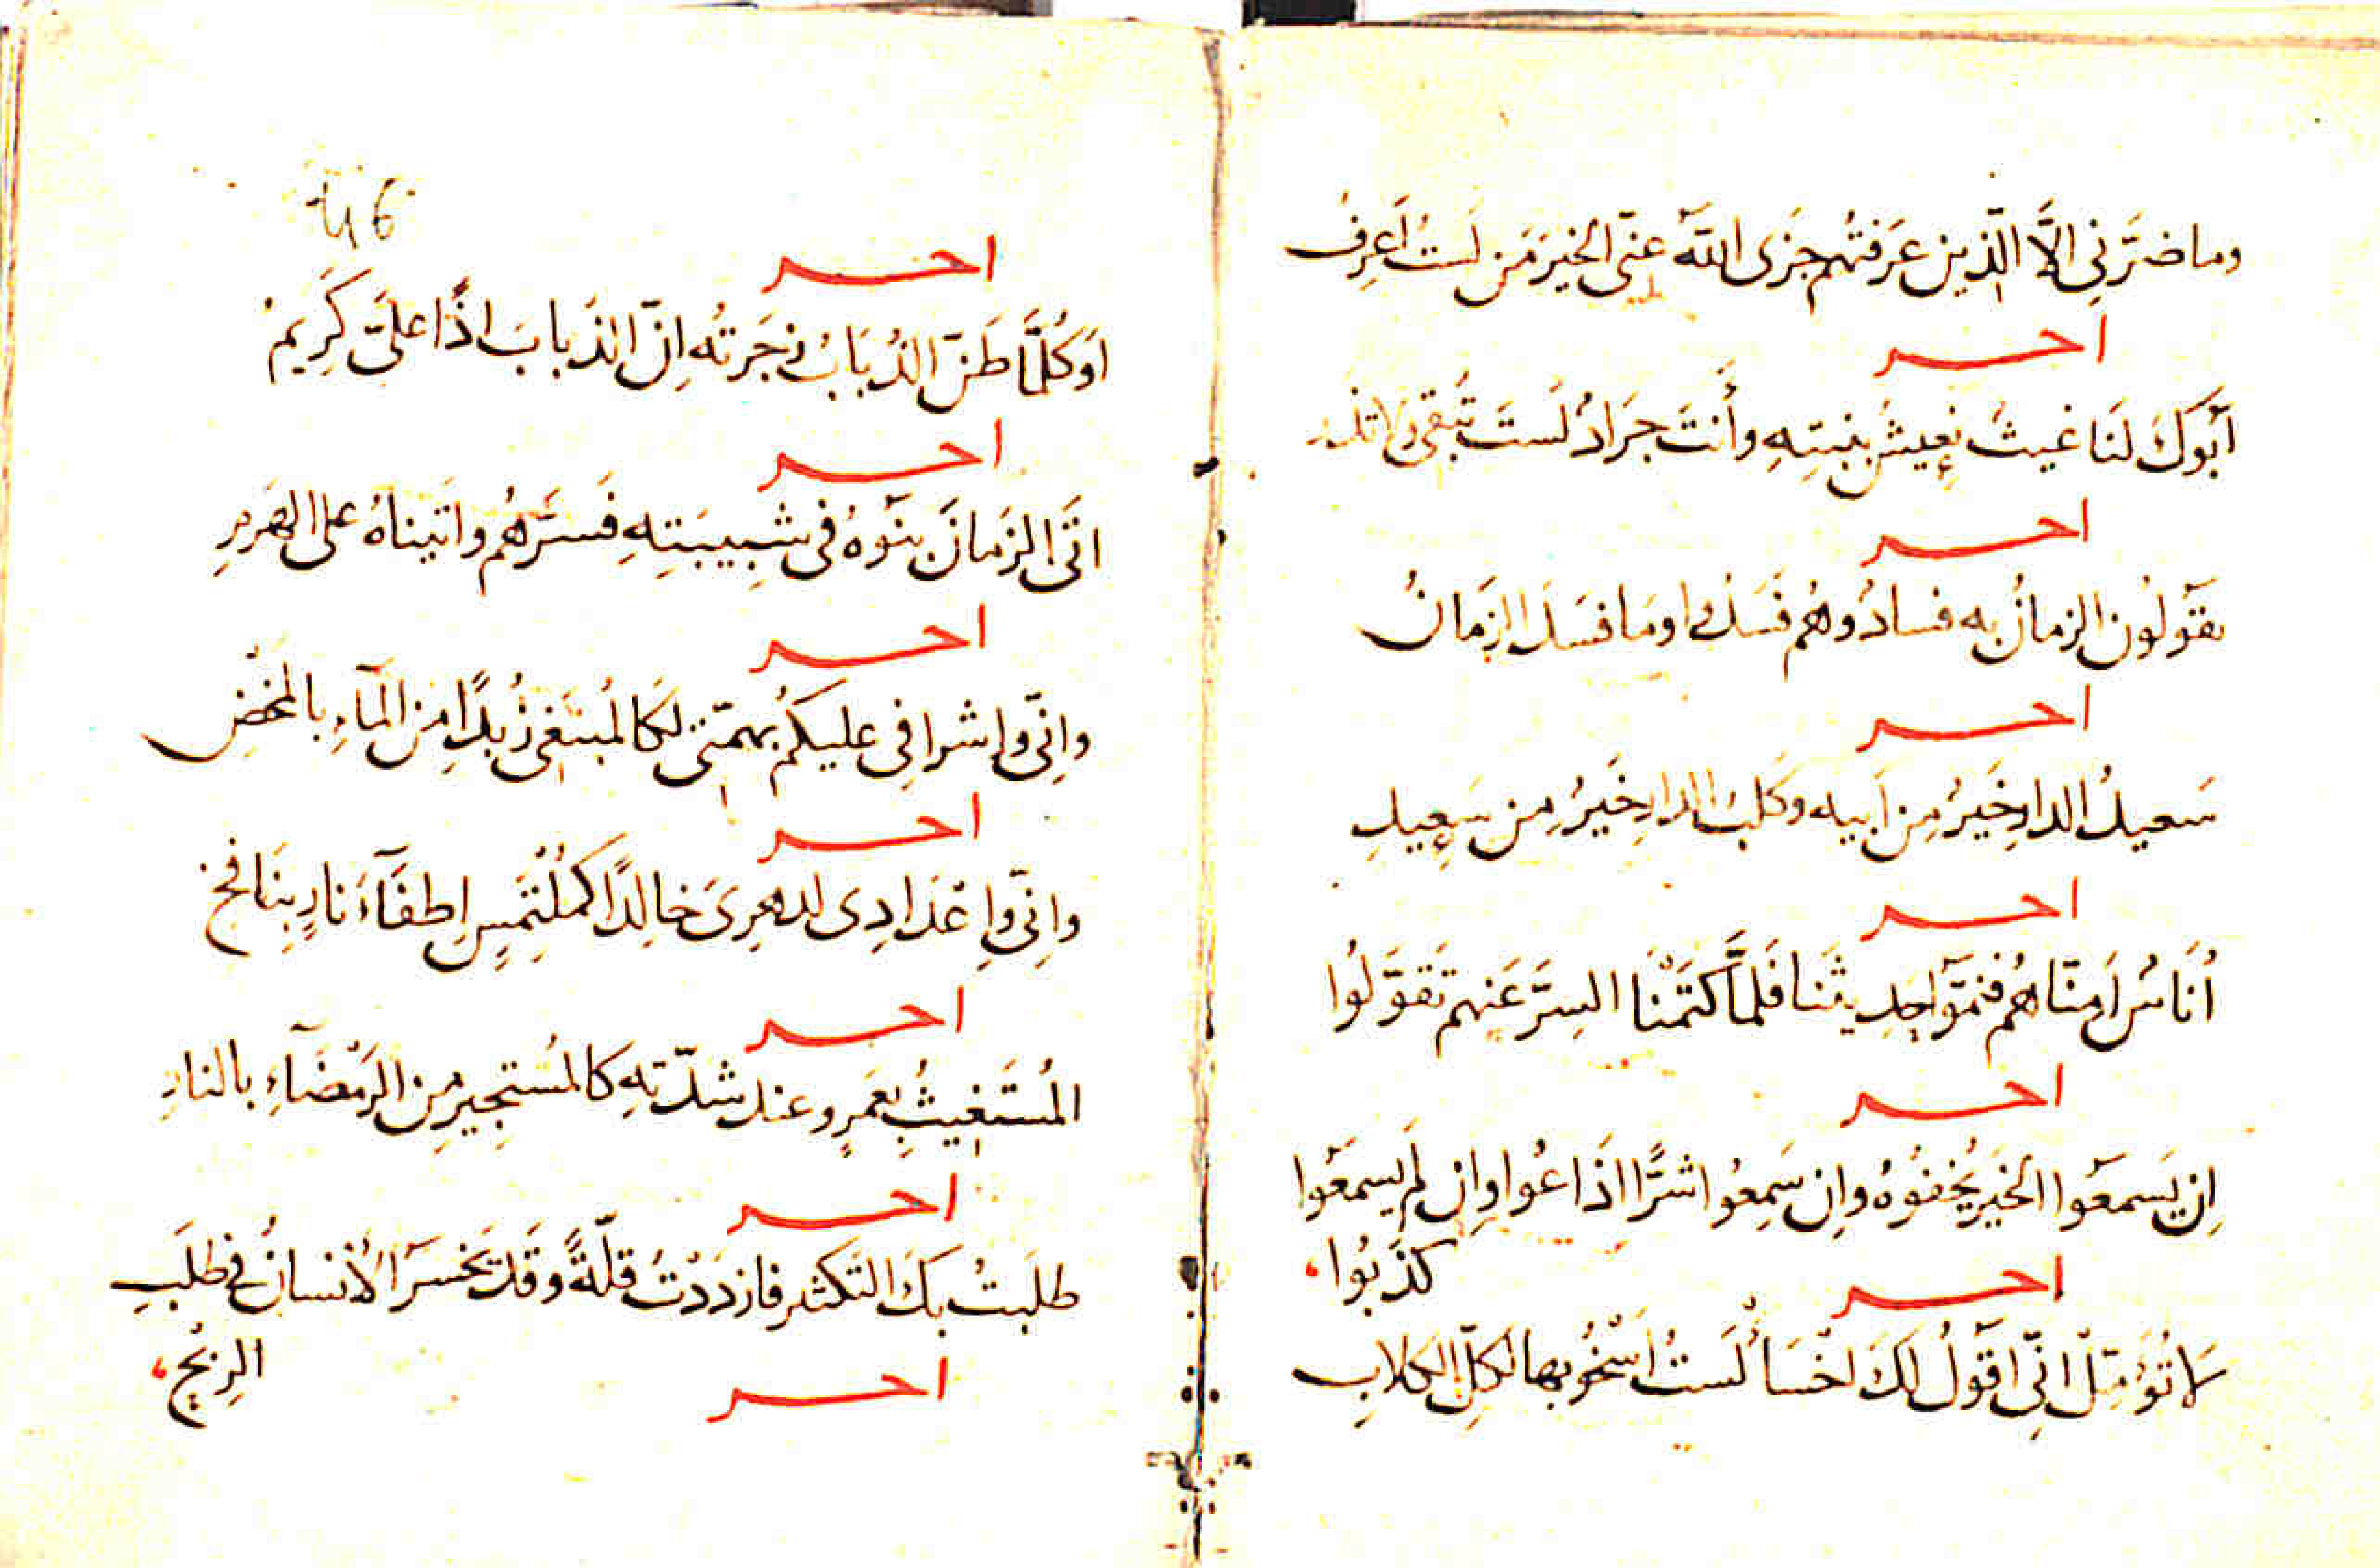 وما ضَرَّنِى الَّا الّذين عَرَفتُهم جَزَى اللّهُ عنّى الخيرَ مَن لَستُ اَعرِفُ
اخــر
اَبَوكَ لَنا غيثٌ نعِيشُ بنبتِهِ وأنتَ جَرَادٌ لَستَ تُبقى ولا تذر
اخــر
يقَولُون الزمانُ به فسادٌ وهُم فَسَدُوا ومَا فسَدَ الزمَانُ
اخــر
سَعيدُ الدارِ خَيرٌ مِن اَبيه وكَلبُ الدارِ خَيرٌ مِن سَعِيدِ
اخــر
اُنَاسٌ اَمِنّاهُم فنمّوا حَدِيثَنا فَلمَّا كَتَمْنَا السِرَّ عَنهم تَقَوّلُوا
اخــر
اِن يَسمعَوا الخيَر يُخفُوهُ واِن سَمِعُوا شرًّا اذَاعُوا واِن لَم يسمعَوا
كذَبُوا،
اخــر
لَا تُؤَمِّل انِّى اقَولُ لكَ اخْسَأْ لَستُ اَسْخُو بها لكلّ الكِلابِ
46
اخــر
اَوَكُلَّمَا طَنّ الذُبَابُ زجَرتُه اِنّ الذبابَ اذًا علَىَّ كَرِيمُ
اخــر
اتَى الزمَانَ بنَوهُ فى شبِيبَتِهِ فَسَرَّهُم واتَيناهُ على الهَرمِ
اخــر
واِنِّى واِشرافِى عليكُم بهمّتى لكَالمُبتَغى زُبدًا مِن المَآءِ بالمَخْضِ
اخــر
واِنّى واِعْدَادِى لدهرِىَ خالِدًا كمُلتَمِسٍ اِطفَآءَ نارٍ بِنَافخِ
اخــر
المُستَغيثُ بعَمرٍو عند شدّتهِ كالمُستَجِيرِ مِن الرَمْضَآءِ بالنارِ
اخــر
طلَبتُ بكَ التكثر فازدَدْتُ قلّةً وقَد يَخسَرُ الاُنسانُ فى طلَبِ
الرِبْحِ،
اخــر